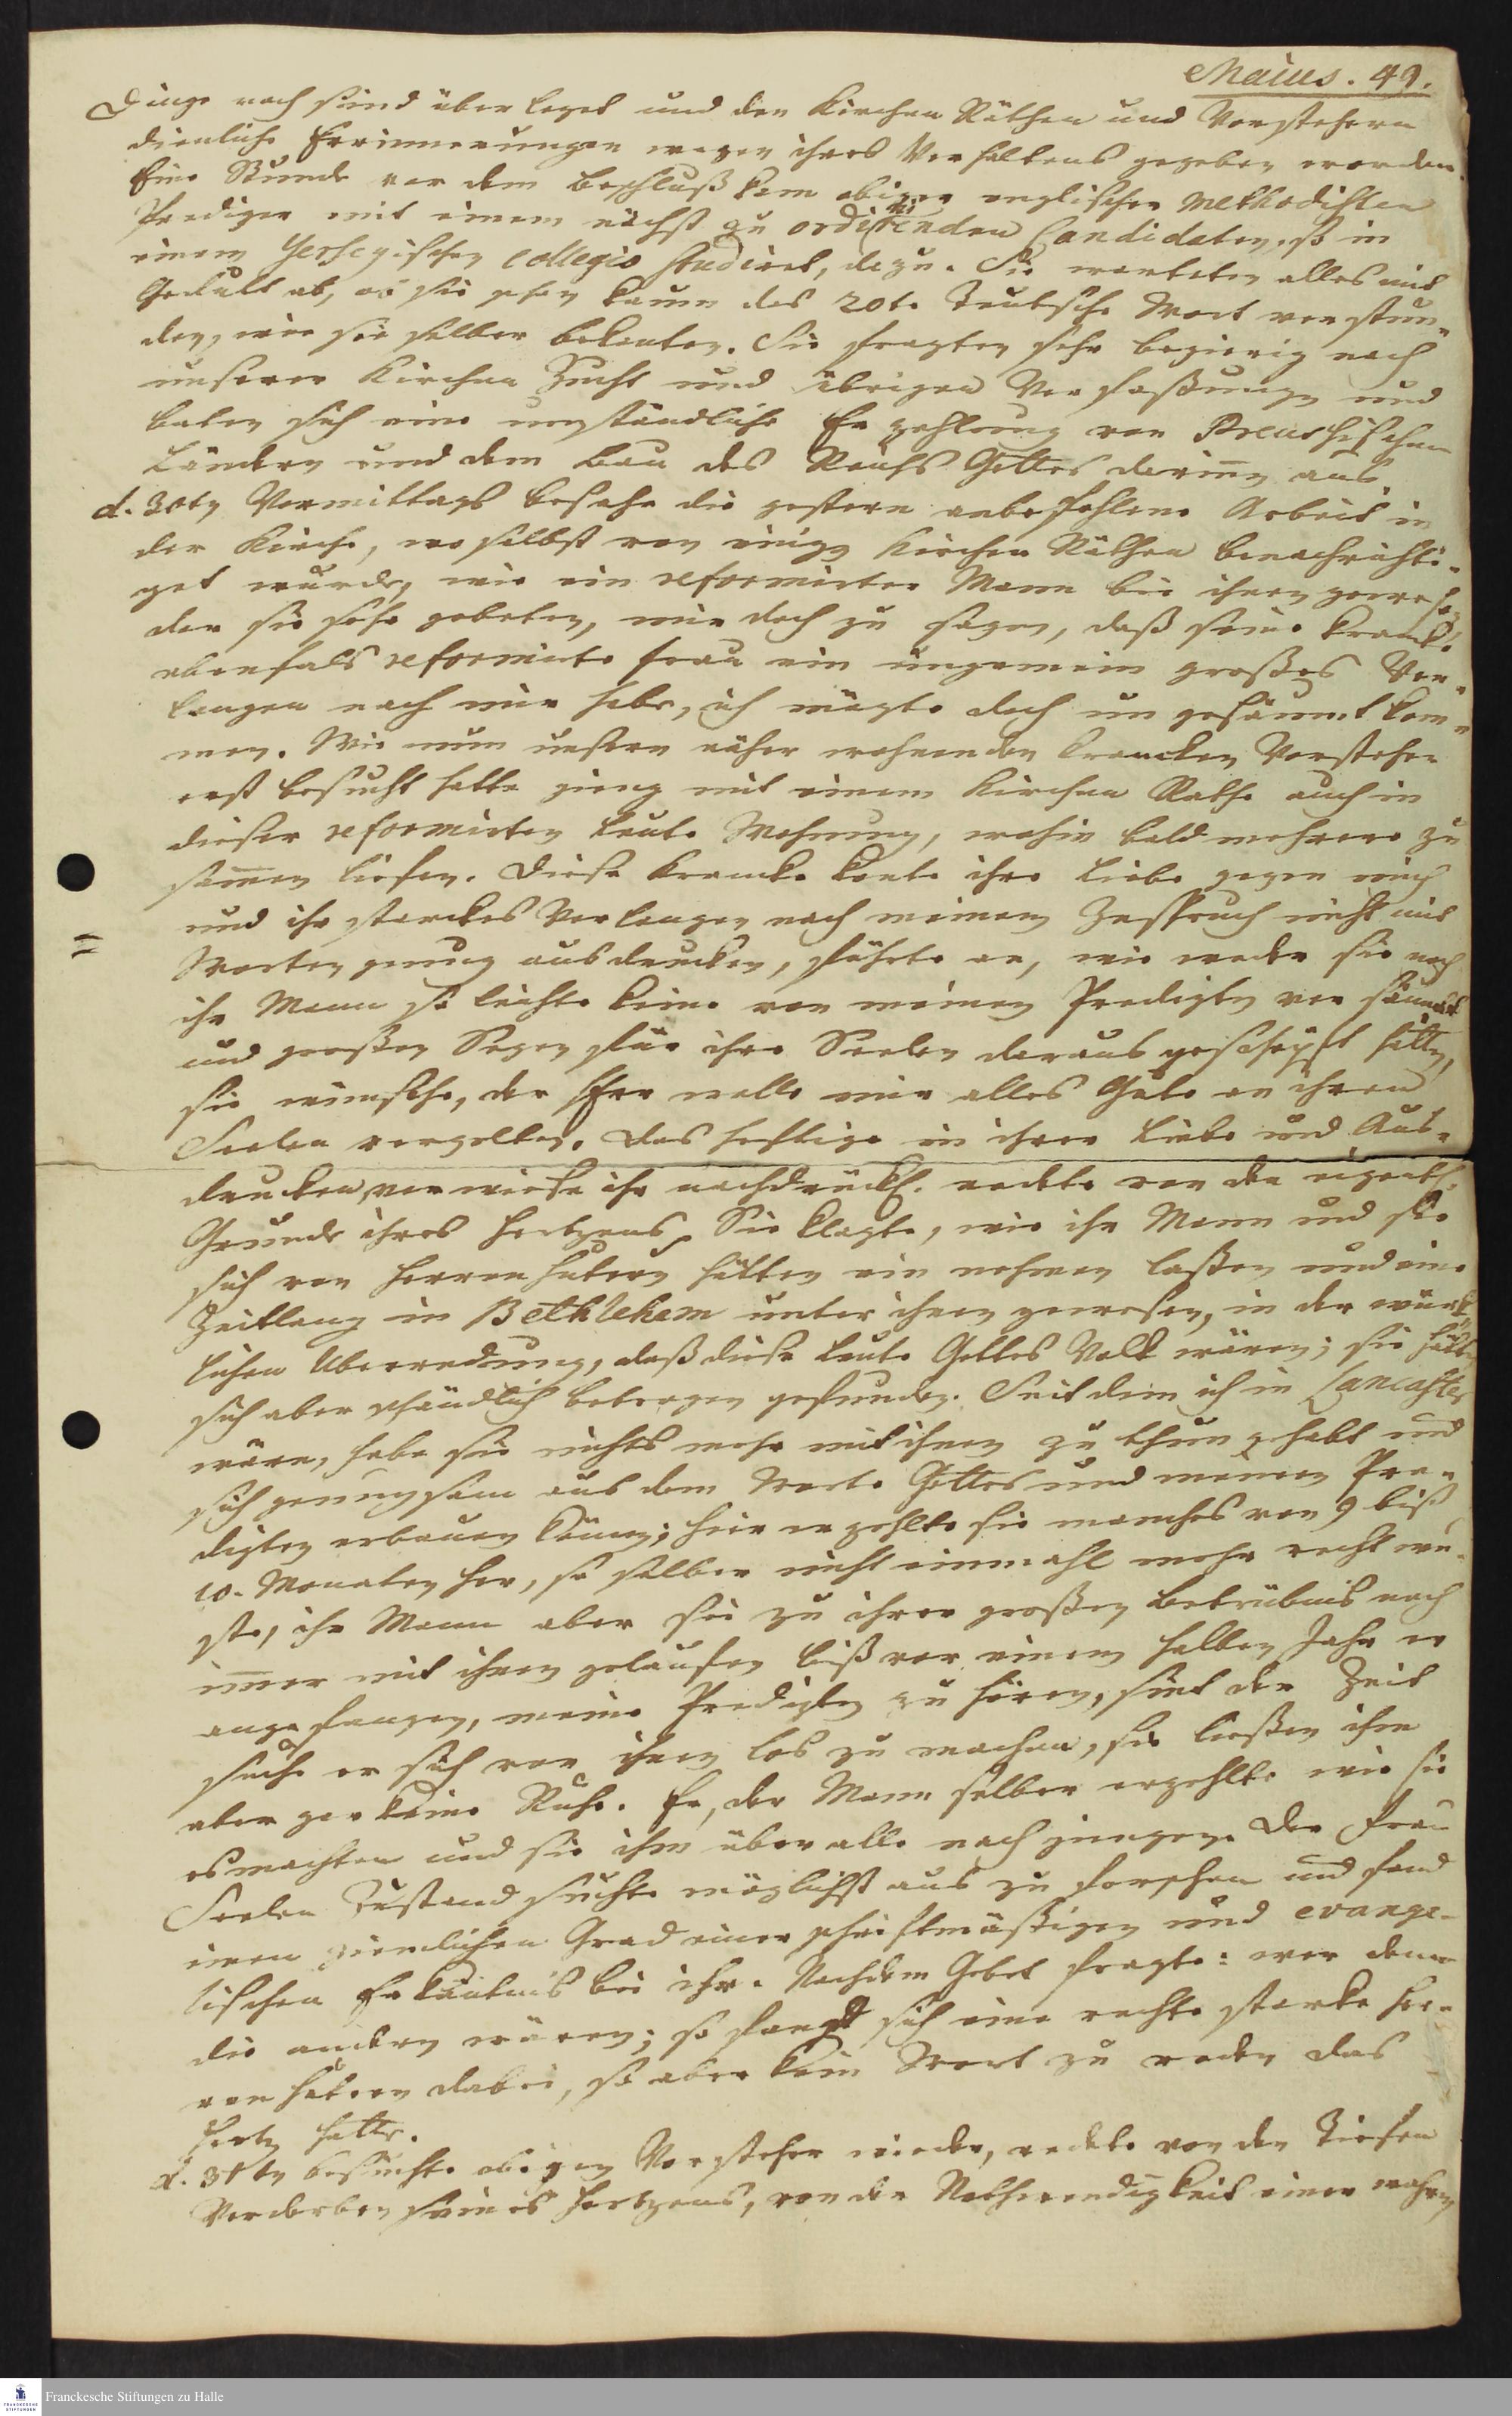 Maius. 49.
Dinge noch sind überleget und den Kirchen Räthen und Vorstehern
dienliche Errinnerungen wegen ihres Verhaltens gegeben worden.
Eine Stunde vor dem Beschluß kam obiger englischer Methodisten
Prediger mit einem nächst zu ordinirenden Candidaten, so in
einem Jerseyischen Collegio studiret, dazu. Sie warteten alles mit
Gedult ab, ob sie schon kaum das 20te Teutsche Wort verstun-
den, wie sie selber bekanten. Sie fragten sehr begierig nach
unserer Kirchen Zucht und übrigen Verfaßungen und
baten sich eine umständliche Erzehlung von Preusischen
Ländern und dem Bau des Reichs Gottes darinnen aus.
d. 30ten Vormittags besahe die gestern anbefohlene Arbeit in
der Kirche, woselbst von einigen Kirchen Räthen benachrichti-
get wurde, wie ein reformirter Mann bei ihnen gewesen,
der sie sehr gebeten, mir doch zu sagen, daß seine krancke
ebenfals reformirte Frau ein ungemein großes Ver-
langen nach mir habe, ich mögte doch ungesäumt kom-
men. Wie nun unsern näher wohnenden krancken Vorsteher
erst besucht hatte gieng mit einem Kirchen Rathe auch in
dieser reformirten Leute Wohnung, wohin bald mehrere zu
samen liefen. Diese Krancke konte ihre Liebe gegen mich
und ihr starckes Verlangen nach meinem Zuspruch nicht mit
Worten genug ausdrucken, führte an, wie weder sie noch
ihr Mann so leichte keine von meinen Predigten versäumet
und großen Segen für ihre Seelen daraus geschöpft hätten,
sie wünsche, der Herr wolle mir alles Gute an ihren
Seelen vergelten. Das heftige in ihrer Liebe und Aus-
drucken verwiese ihr nachdrückl. redete von den eigentl.
Grunde ihres Hertzens. Sie klagte, wie ihr Mann und sie
sich von Herrenhutern hätten einnehmen laßen und eine
Zeitlang in Bethlehem unter ihnen gewesen, in der würk-
lichen Uberredung, daß diese Leute Gottes Volk wären; sie hätten
sich aber schändlich betrogen gefunden. Seit dem ich in Lancaster
wäre, habe sie nichts mehr mit ihnen zu thun gehabt und
sich genungsam aus dem Worte Gottes und meinen Pre-
digten erbauen können; hier erzehlte sie manches von 9 biß
10. Monaten her, so selber nicht einmahl mehr recht wu-
ste, ihr Mann aber sei zu ihrer großen Betrübnis noch
immer mit ihnen gelaufen biß vor einem halben Jahr er
angefangen, meine Predigten zu hören, seit der Zeit
suche er sich von ihnen los zu machen, sie ließen ihm
aber gar keine Ruhe. Er, der Mann selber erzehlte wie sie
es machten und sie ihm überalle nach giengen. Der Frau
Seelen Zustand suchte möglichst aus zu forschen und fand
einen ziemlichen Grad einer schriftmäßigen und evange-
lischen Erkäntnis bei ihr. Nach dem Gebet fragte: wer denn
die andern wären; so fand sich eine rechte starke Her-
ren huterin dabei, so aber kein Wort zu reden das
Hertz hatte.
d. 31ten besuchte obigen Vorsteher wieder, redete von den Tiefen
Verderben seines Hertzens, von der Nothwendigkeit einer wahren
Franckesche Stiftungen zu Halle